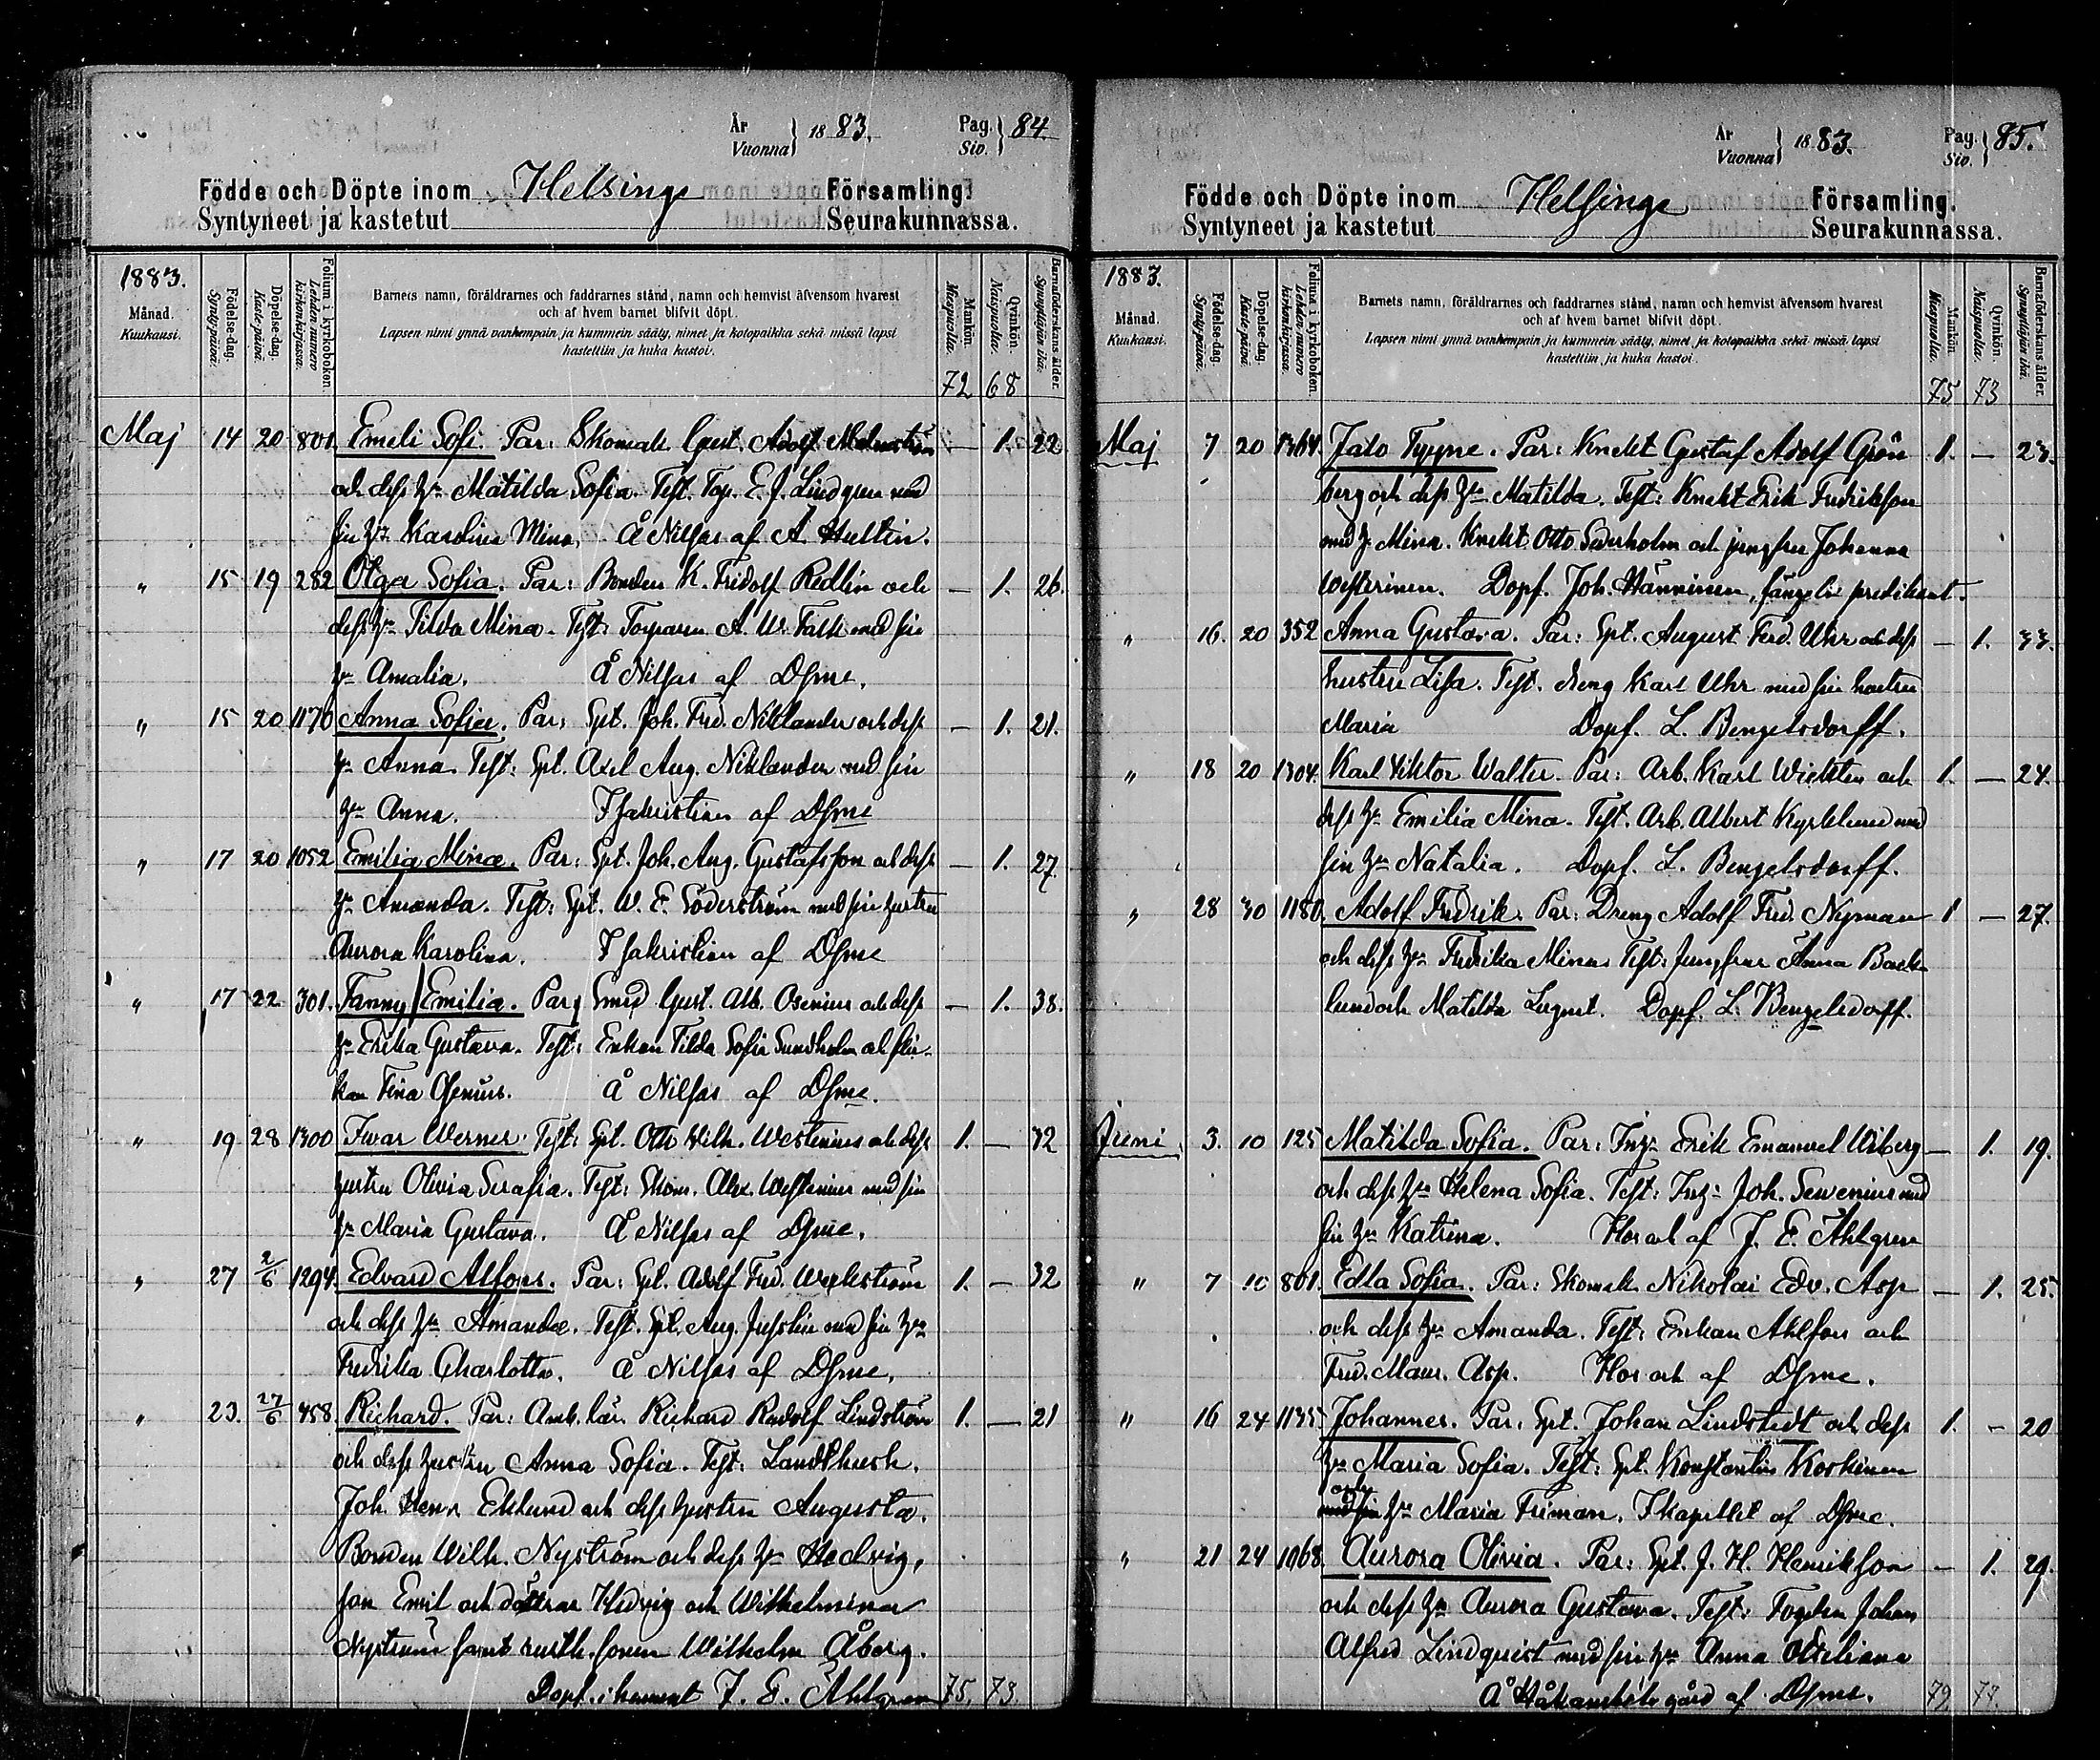 År
Vuonna } 1883. Pag.
Siv. } 84.
Födde och Döpte inom Helsinge Församling.
Syntyneet ja kastetut Seurakunnassa.
1883.
Månad.
Kuukausi.
Födelse-dag.
Synty-päivä.
Döpelse-dag.
Kaste-päivä.
Folium i kyrkoboken.
Lehden numero kirkonkirjassa.
Barnets namn, föräldrarnes och faddrarnes stånd, namn och hemvist äfvensom hvarest
och af hvem barnet blifvit döpt.
Lapsen nimi ynnä vanhempain ja kummein sääty, nimet ja kotopaikka sekä missä lapsi
kastettiin ja kuka kastoi.
Mankön.
Miespuolia.
Qvinkön.
Naispuolia.
Barnaföderskans ålder.
Synnyttäjän ikä.
72 68
Maj 14 20 801. Emeli Sofi. Par: Skomak. Gust. Adolf Malmström — 1. 22
och dess hu Matilda Sofia. Test. Torp. E. J. Lindgren med
sin hu Karolina Mina. Å Nilsas af A. Hultin.
" 15 19 282 Olga Sofia. Par: Bonden K. Fridolf Redlin och — 1. 26.
dess hu Tilda Mina. Test: Torparen A. W. Falk med sin
hu Amalia. Å Nilsas af Dsme.
" 15 20 1170 Anna Sofia. Par: Spt. Joh. Fred. Niklander och dess — 1. 21.
hu Anna. Test: Spt. Axel Aug. Niklander med sin
hu Anna. I sakristian af Dsme
" 17 20 1052 Emilia Mina. Par: Spt. Joh. Aug. Gustafsson och dess — 1. 27
hu Amanda. Test: Spt. W. E. Söderström med sin hustru
Aurora Karolina. I sakristian af Dsme
" 17 22 301. Fanny Emilia. Par: Smed Gust. Alb. Osenius och dess — 1. 38.
hu Erika Gustava. Test: Enkan Tilda Sofia Sundholm och flic-
kan Fina Osenius. Å Nilsas af Dsme.
" 19 28 1300 Iwar Werner. Test: Spt. Otto Wilh. Westenius och dess 1. — 32
hustru Olivia Serafia. Test: Skom. Alex. Westenius med sin
hu Maria Gustava. Å Nilsas af Dsme.
" 27 2/6 1294. Edvard Alfons. Par: Spt. Adolf Fred. Weckström 1. — 32
och dess hu Amanda. Test. Spt. Aug. Juslin med sin hu
Fredrika Charlotta. Å Nilsas af Dsme.
" 23. 27/6 458 Richard. Par: Amb. lär. Richard Rudolf Lindström 1. — 21
och dess hustru Anna Sofia. Test: Landtbruk.
Joh. Henr. Eklund och dess hustru Augusta.
Bonden Wilh. Nyström och dess hu Hedvig,
son Emil och döttrar Hedvig och Wilhelmina
Nyström samt rusth. sonen Wilhelm Åberg.
Dopf. i hemmet J. E. Åhlgren 75. 73.
År
Vuonna } 1883. Pag.
Siv. } 85.
Födde och Döpte inom Helsinge Församling.
Syntyneet ja kastetut Seurakunnassa.
1883.
Månad.
Kuukausi.
Födelse-dag.
Synty-päivä.
Döpelse-dag.
Kaste-päivä.
Folium i kyrkoboken.
Lehden numero kirkonkirjassa.
Barnets namn, föräldrarnes och faddrarnes stånd, namn och hemvist äfvensom hvarest
och af hvem barnet blifvit döpt.
Lapsen nimi ynnä vanhempain ja kummein sääty, nimet ja kotopaikka sekä missä lapsi
kastettiin ja kuka kastoi.
Mankön
Miespuolia.
Qvinkön
Naispuolia.
Barnaföderskans ålder.
Synnyttäjän ikä.
75 73
Maj 7 20 1364. Jalo Tyyne. Par: Knekt Gustaf Adolf Grön 1. — 23.
berg och dess hu Matilda. Test: Knekt Erik Fredriksson
med h. Mina. Knekt Otto Sederholm och jungfru Johanna
Westerinen. Dopf. Joh. Hänninen, fängelse predikant.
" 16. 20 352 Anna Gustava. Par: Spt. August Ferd. Uhr och dess — 1. 33.
hustru Lisa. Test. dreng Karl Uhr med sin hustru
Maria Dopf. L. Bengelsdorff.
" 18 20 1304. Karl Viktor Walter. Par: Arb. Karl Wicksten och 1. — 24.
dess hu Emilia Mina. Test. Arb. Albert Kyrklund med
sin hu Natalia. Dopf. L. Bengelsdorff.
" 28 30 1180. Adolf Fredrik. Par: Dreng Adolf Fred. Nyman 1 — 27.
och dess hu Fredrika Mina. Test: Jungfrur Anna Back-
lund och Matilda Dopf. L. Bengelsdorff.
Juni 3. 10 125 Matilda Sofia. Par: Inh. Erik Emanuel Wiberg — 1. 19.
och dess hu Helena Sofia. Test: Inh. Joh. Sevenius med
sin hu Katrina. Hos och af J. E. Åhlgren
" 7 10 801. Edla Sofia. Par: Skomak. Nikolai Edv. Asp — 1. 25.
och dess hu Amanda. Test: Enkan Ahlfors och
Fred. Maur. Asp. Hos och af Dsme.
" 16 24 1135 Johannes. Par: Spt. Johan Lindstedt och dess 1. - 20
hu Maria Sofia. Test: Spt. Konstantin Koskinen
och
med sin hu Maria Friman. I kapellet af Dsme.
" 21 24 1068. Aurora Olivia. Par: Spt. J. H. Henriksson — 1. 29.
och dess hu Aurora Gustava. Test: Fogden Johan
Alfred Lindquist med sin hu Anna Otteliana
Å Håkansböle gård af Dsme. 79 78.